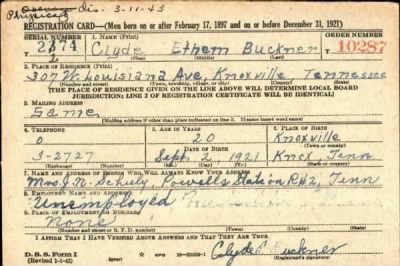 dis. 3-11-43
Physical
REGISTRATION CARD—(Men born on or after February 17, 1897 and on or before December 31, 1921)
SERIAL NUMBER 1. NAME (Print) ORDER NUMBER
2174 Clyde Ethem Buckner 10287
(First) (Middle) (Last)
2. PLACE OF RESIDENCE (Print)
307 W. Louisiana Ave, Knoxville Tennessee
(Number and street) (Town, township, village, or city) (County) (State)
[THE PLACE OF RESIDENCE GIVEN ON THE LINE ABOVE WILL DETERMINE LOCAL BOARD
JURISDICTION; LINE 2 OF REGISTRATION CERTIFICATE WILL BE IDENTICAL]
3. MAILING ADDRESS
Same
[Mailing address if other than place indicated on line 2. If same insert word same]
4. TELEPHONE 5. AGE IN YEARS 6. PLACE OF BIRTH
0 20 Knoxville
DATE OF BIRTH (Town or county)
3-2727 Sept. 2 1921 Knox Tenn
(Exchange) (Number) (Mo.) (Day) (Yr.) (State or country)
7. NAME AND ADDRESS OF PERSON WHO WILL ALWAYS KNOW YOUR ADDRESS
Mrs J. N. Powells Station R#2, Tenn
8. EMPLOYER'S NAME AND ADDRESS
Unemployed
9. PLACE OF EMPLOYMENT OR BUSINESS
None
(Number and street or R. F. D. number) (Town) (County) (State)
I AFFIRM THAT I HAVE VERIFIED ABOVE ANSWERS AND THAT THEY ARE TRUE.
D. S. S. Form 1
(Revised 1-1-42) (over) Clyde E Buckner
(Registrant's signature)